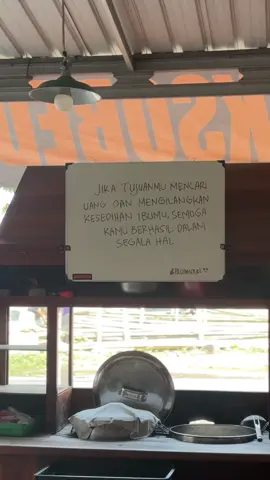 JIKA TUJUANMU MENCARI
UANG DAN MENGHILANGKAN
KESEDIHAN IBUMU, SEMOGA
KAMU BERHASIL DALAM
SEGALA HAL